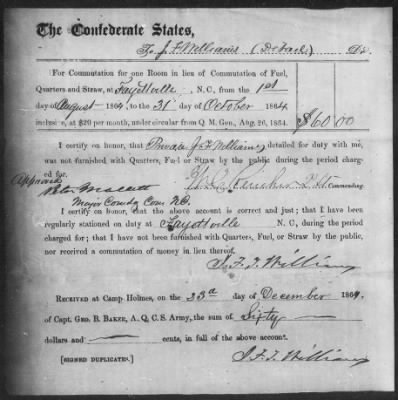 The Confederate States,
To J. F. Williams (Detail) Dr.
For Commutation for one Room in lieu of Commutation of Fuel,
Quarters and Straw, at Fayettville, N. C., from the 1st
day of August 1864, to the 31 day of October 1864
inclusive, at $20 per month, under circular from Q. M. Gen., Aug. 26, 1864. $60.00
I certify on honor, that Private J. F. Williams detailed for duty with me,
was not furnished with Quarters, Fuel or Straw by the public during the period charg-
ed for.
Approved
Lt Commanding.
Peter Mallett
Major Comdg Con. N.C.
I certify on honor, that the above account is correct and just; that I have been
regularly stationed on duty at Fayettville N. C., during the period
charged for; that I have not been furnished with Quarters, Fuel, or Straw by the public,
nor received a commutation of money in lieu thereof.
Williams
Received at Camp Holmes, on the 23d day of December 1864,
of Capt. Geo. B. Baker, A. Q. C. S. Army, the sum of Sixty
dollars and cents, in full of the above account.
[SIGNED DUPLICATES.] Williams